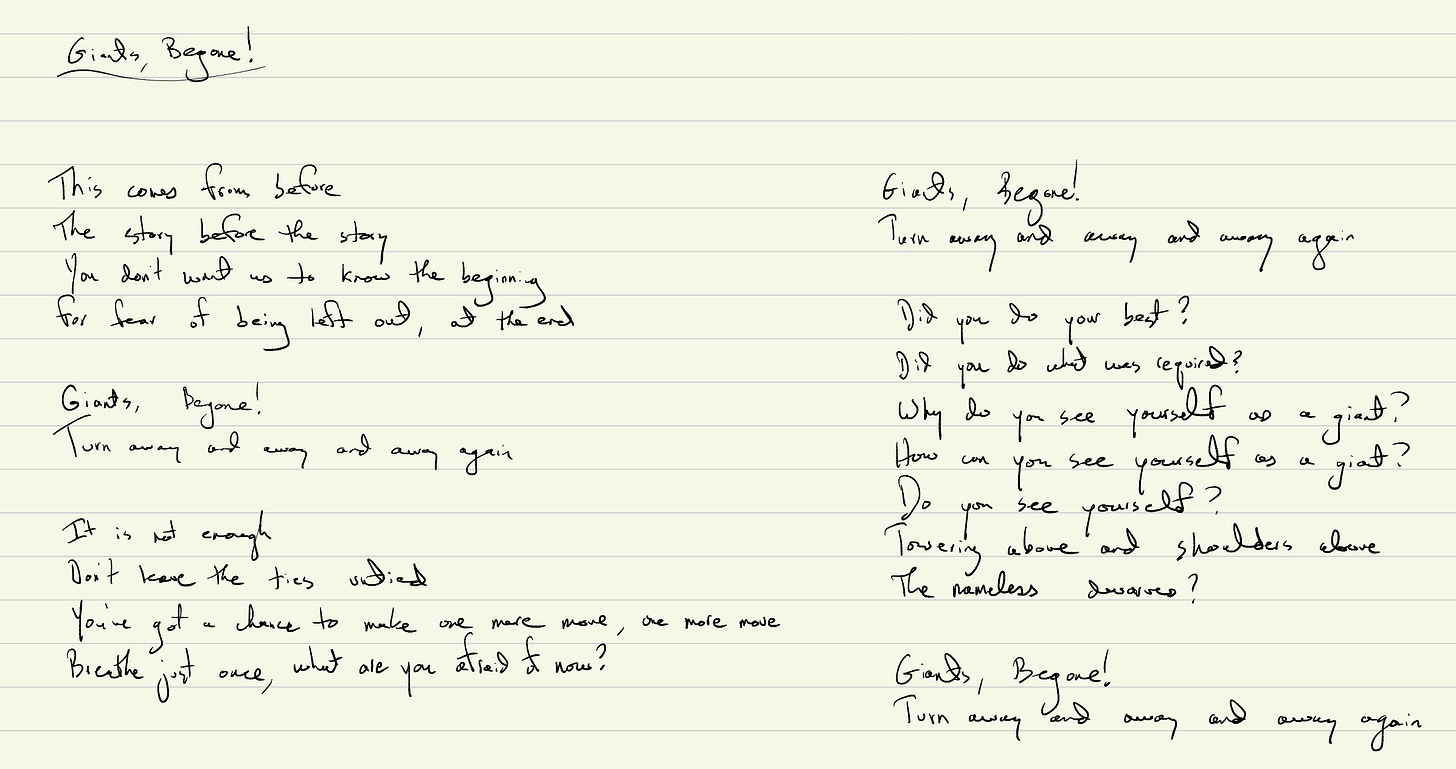 Giants, Begone!
This comes from before
The story before the story
You don't want us to know the beginning
for fear of being left out, at the end
Giants, Begone!
Turn away and away and away again
It is not enough
Don't leave the ties untied
You've got a chance to make one more move, one more move
Breathe just once, what are you afraid of now?
Giants, Begone!
Turn away and away and away again
Did you do your best?
Did you do what was required?
Why do you see yourself as a giant?
How can you see yourself as a giant?
Do you see yourself?
Towering above and shoulders above
The nameless dwarves?
Giants, Begone!
Turn away and away and away again